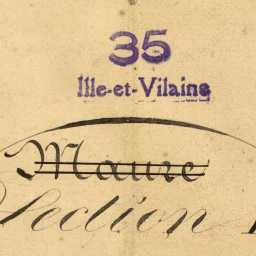 35
Ille-et-Vilaine
Maure
Section